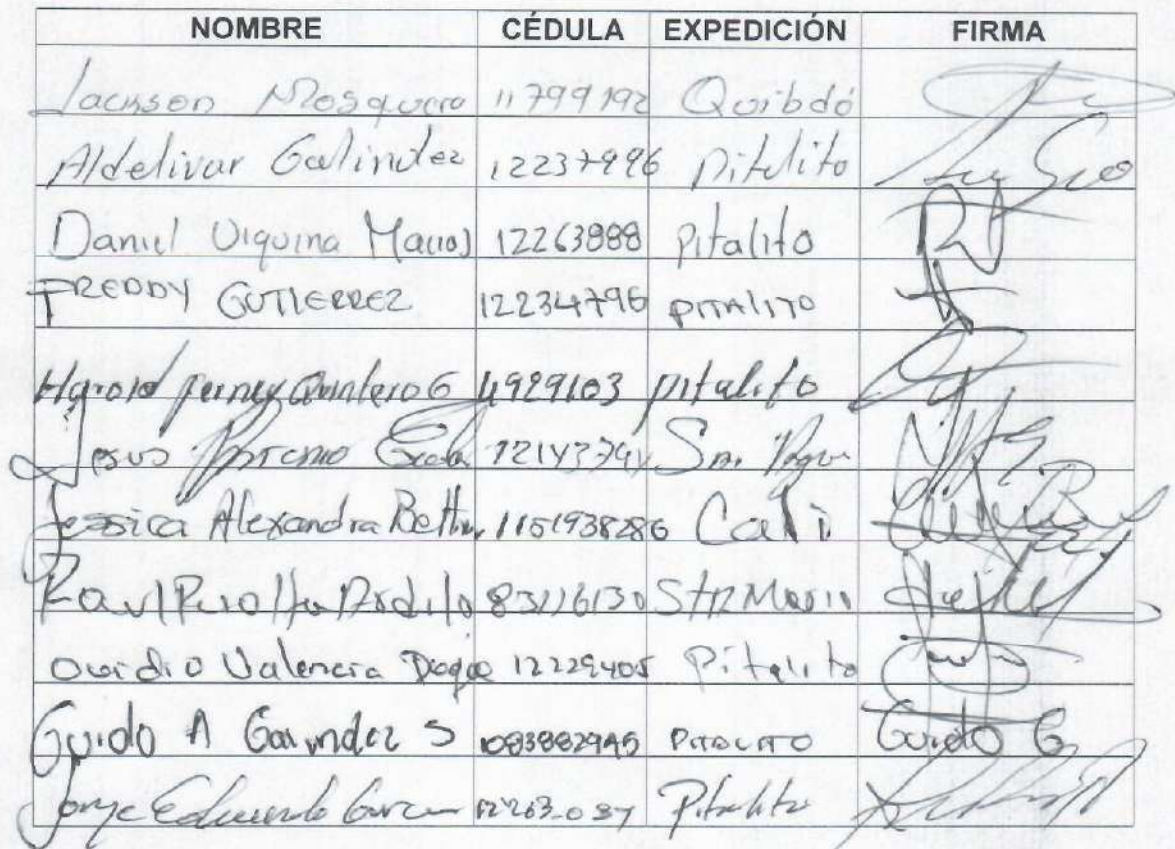 NOMBRE CÉDULA EXPEDICIÓN FIRMA
Jackson Mosquera 11799192 Quibdó
Aldelivar Galindez 12237996 Pitalito
Daniel Uiquina 12263888 Pitalito
FREDDY GUTIERREZ 12234796 PITALITO
Harold ferney Quintero G 4929103 pitalito
Jesus
Jessica Alexandra 1151938286 Cali
Raul 83116130 Sta Maria
Ovidio Valencia 12229405 Pitalito
Guido A S 1083882945 PITALITO Guido G
Jorge Eduardo 12263.037 Pitalito